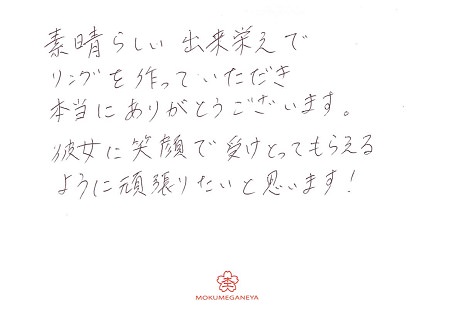 素晴らしい出来栄えで
リングを作っていただき
本当にありがとうございます。
彼女に笑顔で受けとってもらえる
ように頑張りたいと思います!
MOKUMEGANEYA